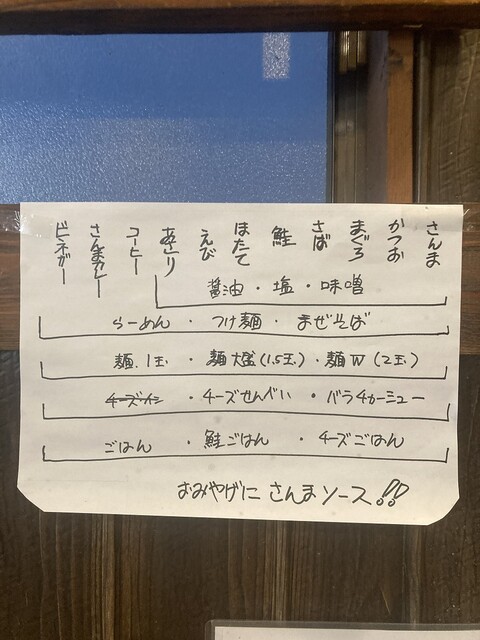 さんま
かつお
まぐろ
さば
鮭
ほたて
えび
あさり
コーヒー
さんまカレー
ビネガー
醤油・塩・味噌
らーめん・つけ麺・まぜそば
麺1玉・麺大盛(1.5玉)・麺W(2玉)
チーズイン・チーズせんべい・バラチャーシュー
ごはん・鮭ごはん・チーズごはん
おみやげに さんまソース!!